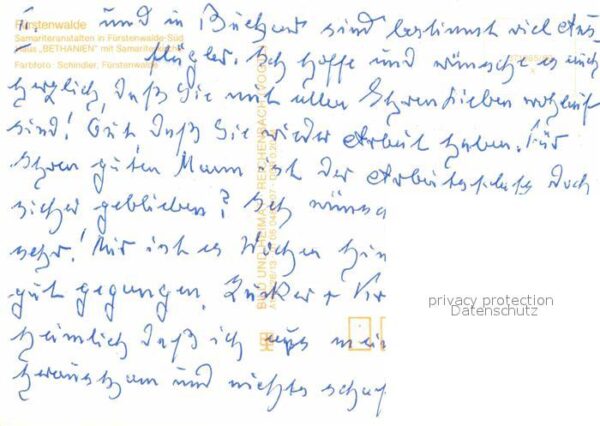 Fürstenwalde
Samariteranstalten in Fürstenwalde-Süd
Haus „BETHANIEN" mit Samariterkirche
Farbfoto: Schindler, Fürstenwalde
u. und in Buchow sind bestimmt viel Aus-
flügler. Ich hoffe und wünsche es auch
herzlich, daß Sie mit allen Ihren Lieben wohlauf
sind! Gut daß Sie wieder Arbeit haben. Für
Ihren guten Mann ist der Arbeitsplatz doch
sicher geblieben? Ich wünsc
sehr! Mir ist es Wochen hin
gut gegangen. Zucker +
heimlich daß ich aus mein
herauskam und nichts schaf
BILD UND HEIMAT REICHENBACH (VOGTL)
privacy protection
Datenschutz